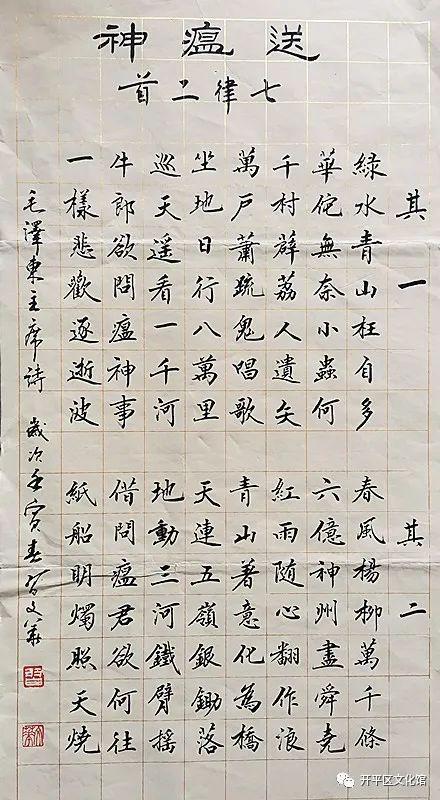 送瘟神
七律二首
其一
綠水青山枉自多
華佗無奈小蟲何
千村薜荔人遺矢
萬戶蕭疏鬼唱歌
坐地日行八萬里
巡天遥看一千河
牛郎欲問瘟神事
一樣悲歡逐逝波
其二
春風楊柳萬千條
六億神州盡舜堯
紅雨隨心翻作浪
青山著意化為橋
天連五嶺銀鋤落
地動三河鐵臂摇
借問瘟君欲何往
紙船明燭照天燒
毛澤東主席詩 歲次壬寅春
开平区文化馆